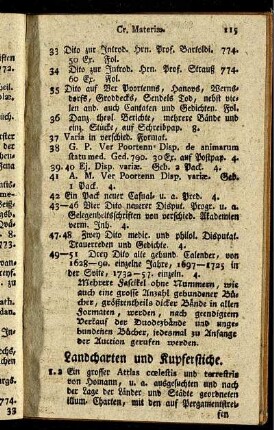 Cr. Materiæ. 115
33 Dito zur Introd. Hrn. Prof. Bartoldi. 774.
50 Ex. Fol.
34 Dito zur Introd. Hrn. Prof. Strauß 774.
60 Ex. Fol.
35 Dito auf Ver Poortenns, Hanovs, Werns-
dorffs, Groddecks, Sendels Tod, nebst vie-
len and. auch Cantaten und Gedichten. Fol.
36 Danz. theol. Berichte, mehrere Bände und
einz. Stücke, auf Schreibpap. 8.
37 Varia in verschied. Format.
38 G. P. Ver Poortenn Disp. de animarum
statu med. Ged. 790. 30 Ex. auf Postpap. 4.
39. 40 Ej. Disp. variæ. Geb. 2 Pack. 4.
41 A. M. Ver Poortenn Disp. variæ. Geb.
1 Pack. 4.
42 Ein Pack neuer Casual- u. a. Pred. 4.
43-46 Vier Dito neuerer Disput. Progr. u. a.
Gelegenheitsschriften von verschied. Akademien
verm. Inh. 4.
47. 48 Zwey Dito medic. und philol. Disputat.
Trauerreden und Gedichte. 4.
49-51 Drey Dito alte gebund. Calender, von
1628-90. einzelne Jahre, 1697-1725 in
der Suite, 1732-57. einzeln. 4.
Mehrere Fascikel ohne Nummern, wie
auch eine grosse Anzahl gebundener Bü-
cher, größtentheils dicker Bände in allen
Formaten, werden, nach geendigtem
Verkauf der Duodezbände und unge-
bundenen Bücher, jedesmal zu Anfange
der Auction gerufen werden.
Landcharten und Kupferstiche.
1. 2 Ein grosser Attlas cœlestis und terrestris
von Homann, u. a. ausgesuchten und nach
der Lage der Länder und Städte geordneten
illum. Charten, mit den auf Pergamentstrei-
fen